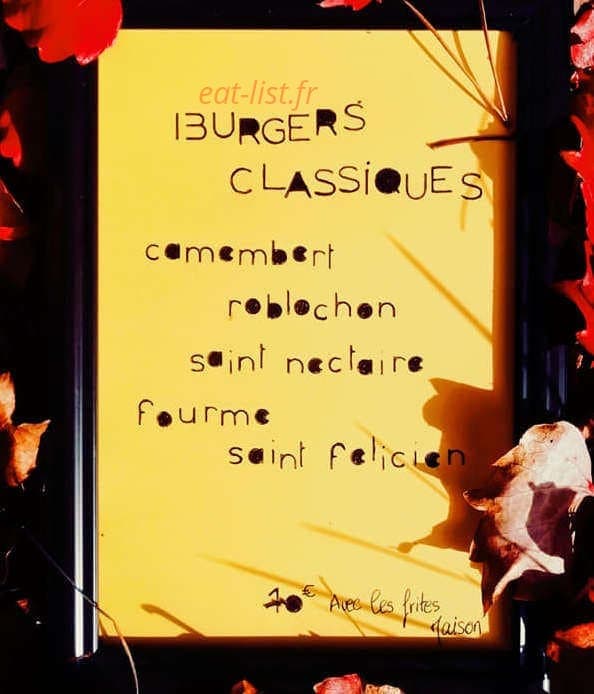 eat-list.fr
BURGERS
CLASSIQUES
camembert
roblochon
saint nectaire
fourme
saint felicien
10€ Avec les frites
Maison